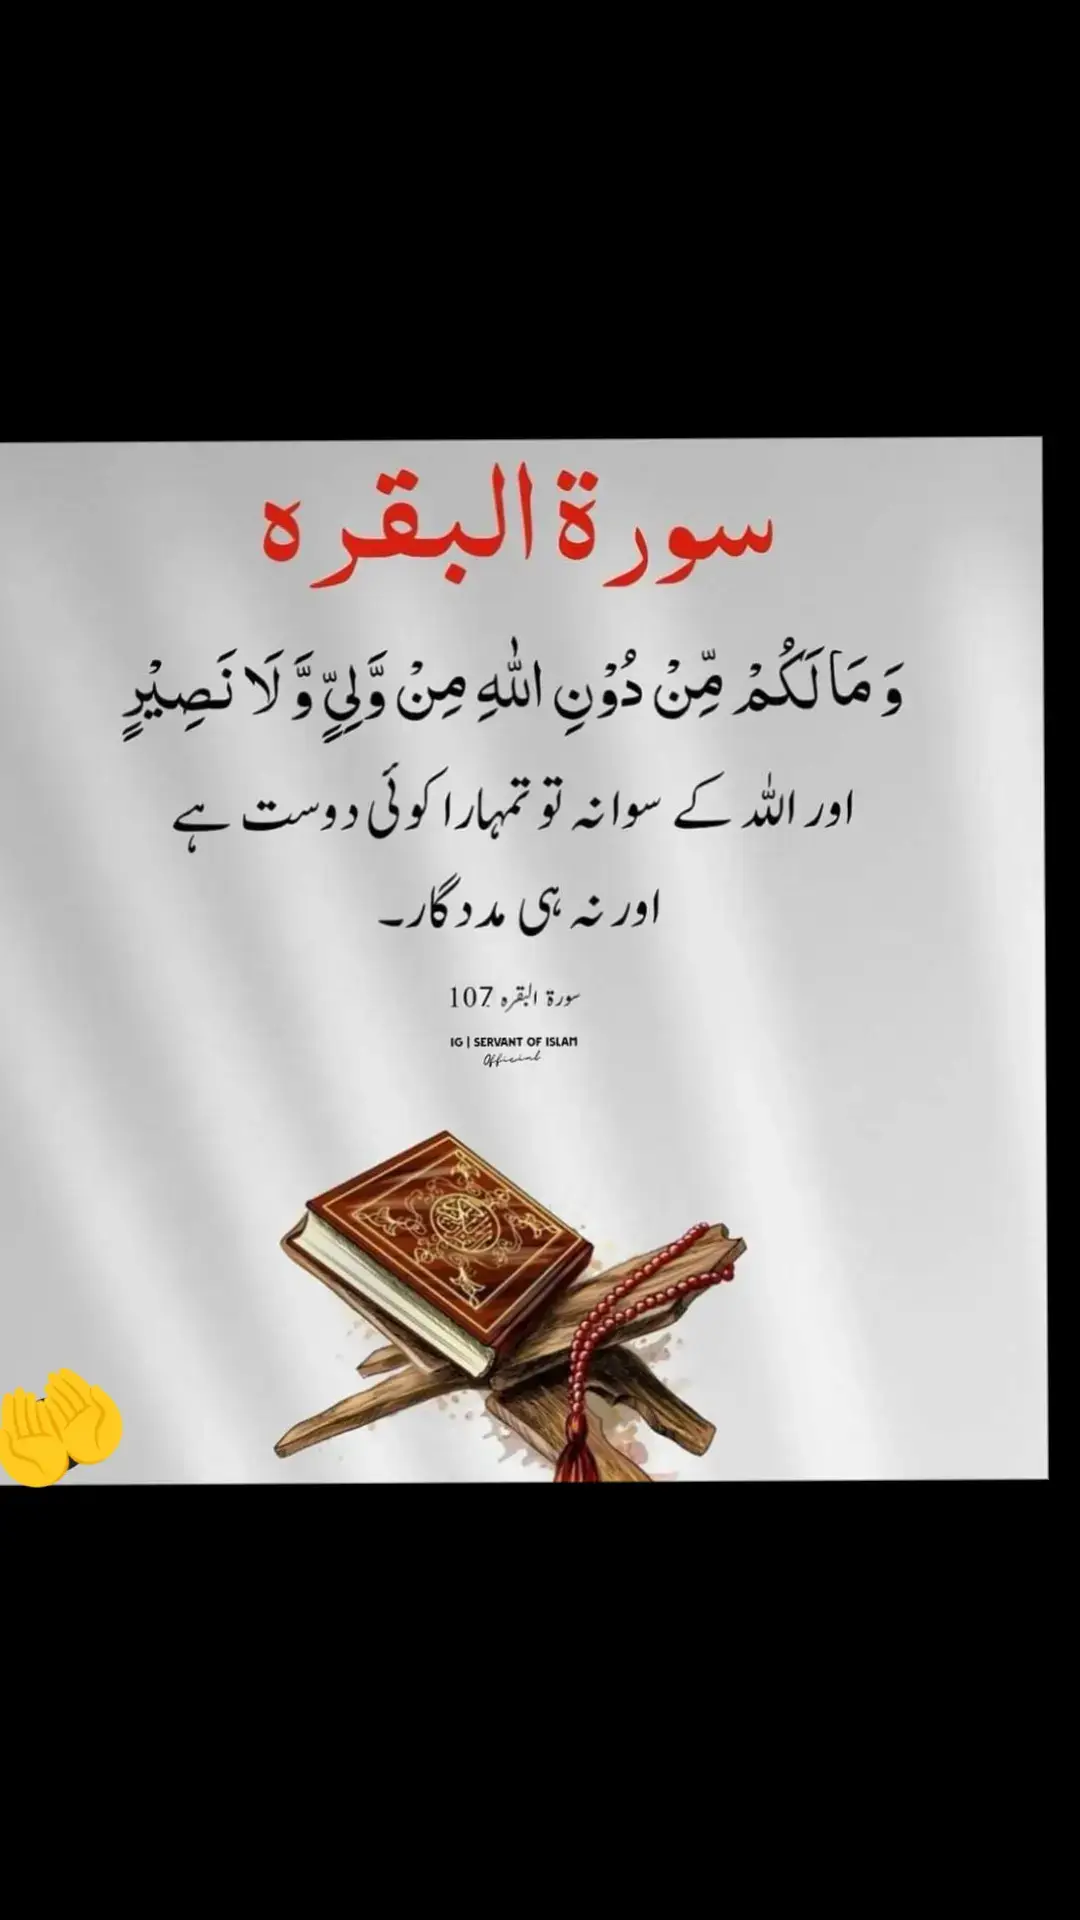 سورة البقره
وَمَا لَكُمْ مِّنْ دُوْنِ اللّٰهِ مِنْ وَّلِيٍّ وَّ لَا نَصِيْرٍ
اور اللہ کے سوا نہ تو تمہارا کوئی دوست ہے
اور نہ ہی مددگار۔
سورۃ البقرہ 107
IG | SERVANT OF ISLAM
Official